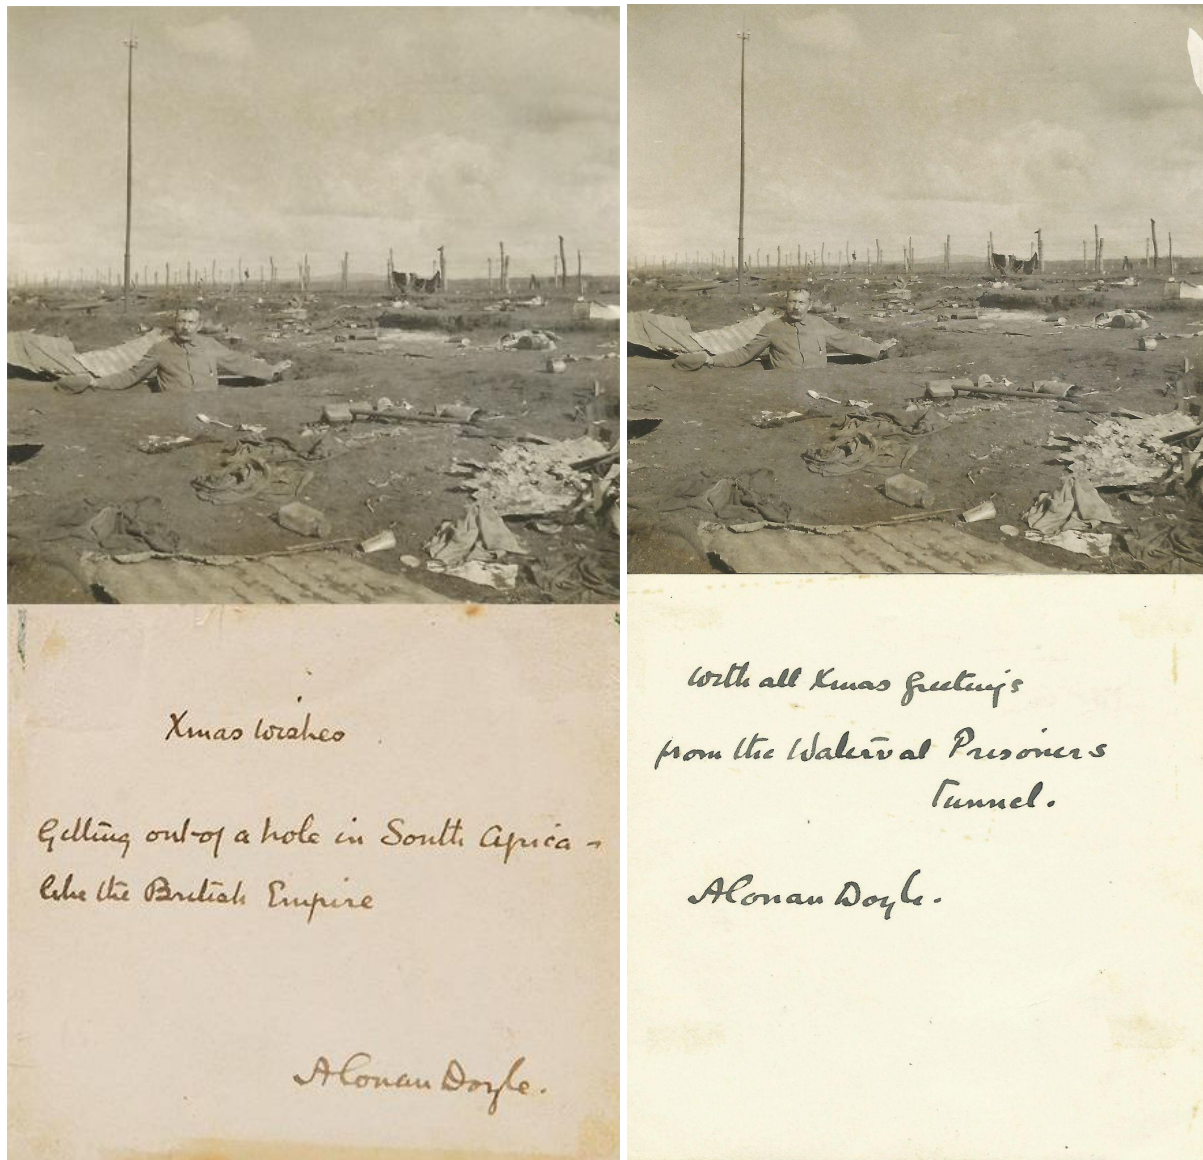 Xmas Wishes
Getting out of a hole in South Africa -
like the British Empire
A Conan Doyle.
With all Xmas Greetings
from the Waterval Prisoners
Tunnel.
A Conan Doyle.